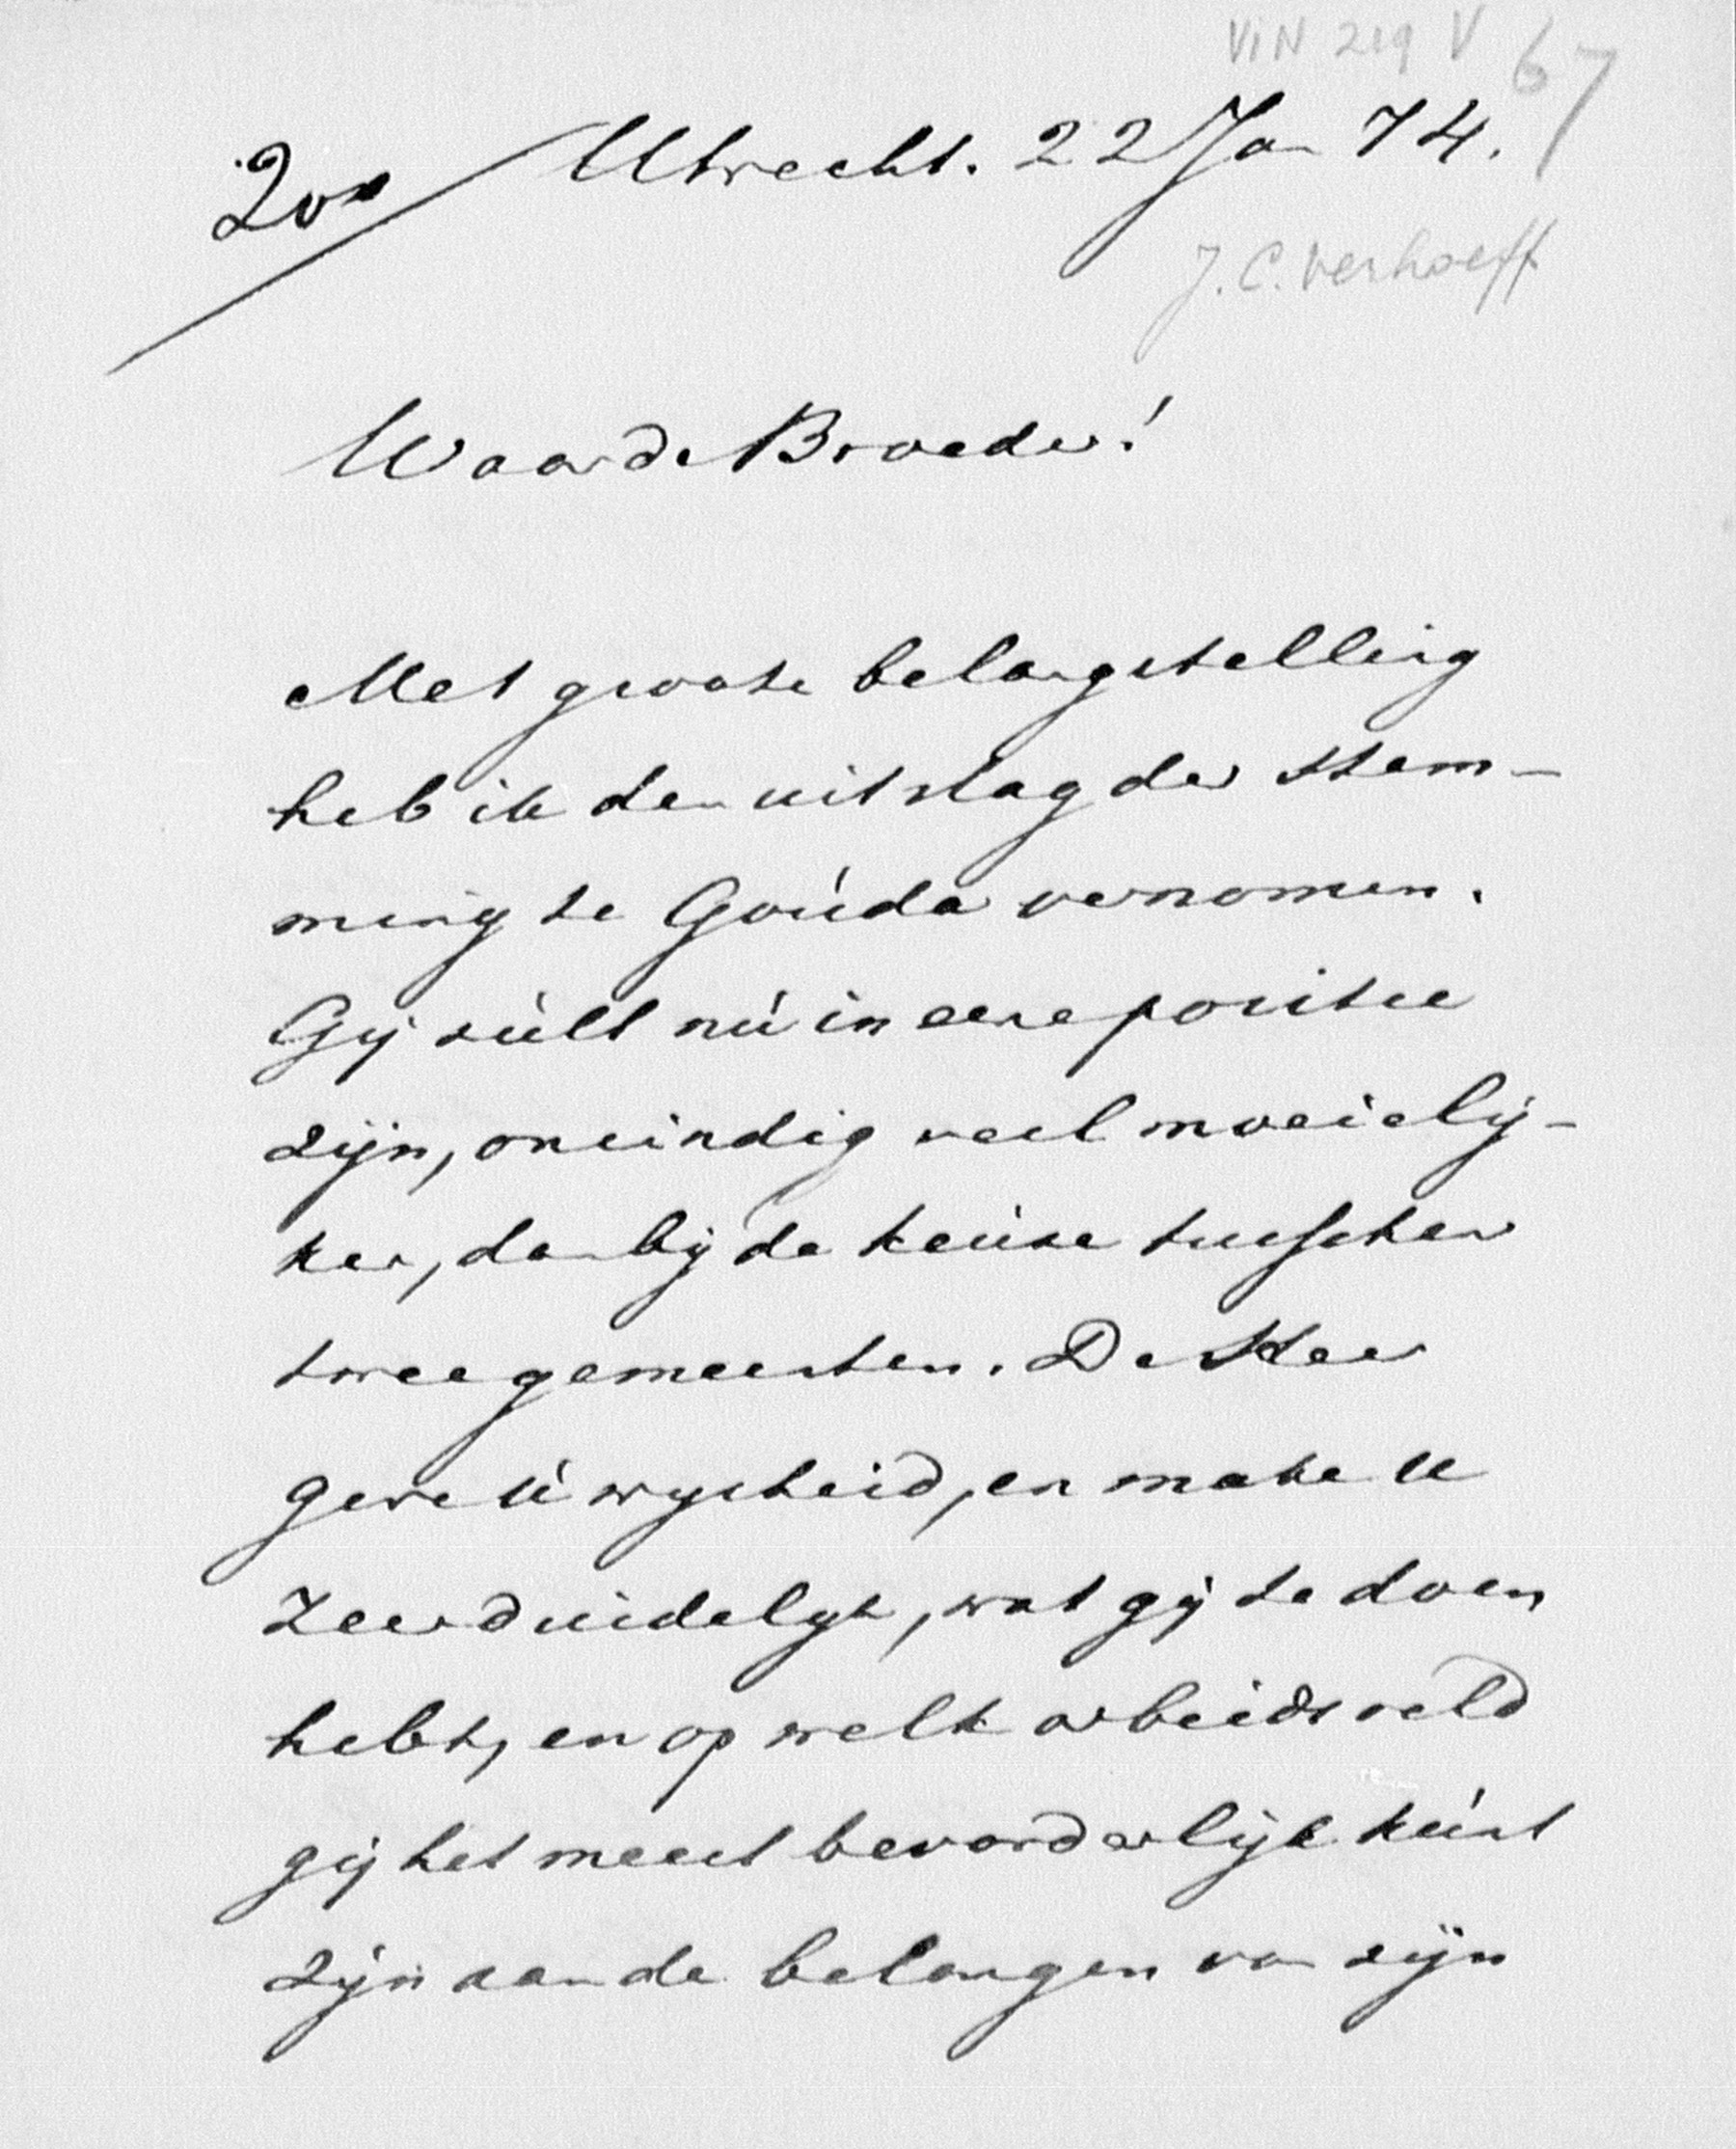 ViN 219 V 67
200 Utrecht. 22 Jan 74.
J. C. Verhoeff
Waarde Broeder!
Met groote belangstelling
heb ik den uitslag der stem-
ming te Gouda vernomen.
Gij zult nu in eene positie
zijn, oneindig veel moeiely-
ker, dan bij de keuze tusschen
twee gemeenten. De Heer
geve U wysheid, en make U
zeer duidelyk, wat gij te doen
hebt, en op welk arbeidsveld
gij het meest bevorderlijk kunt
zijn aan de belangen van zijn